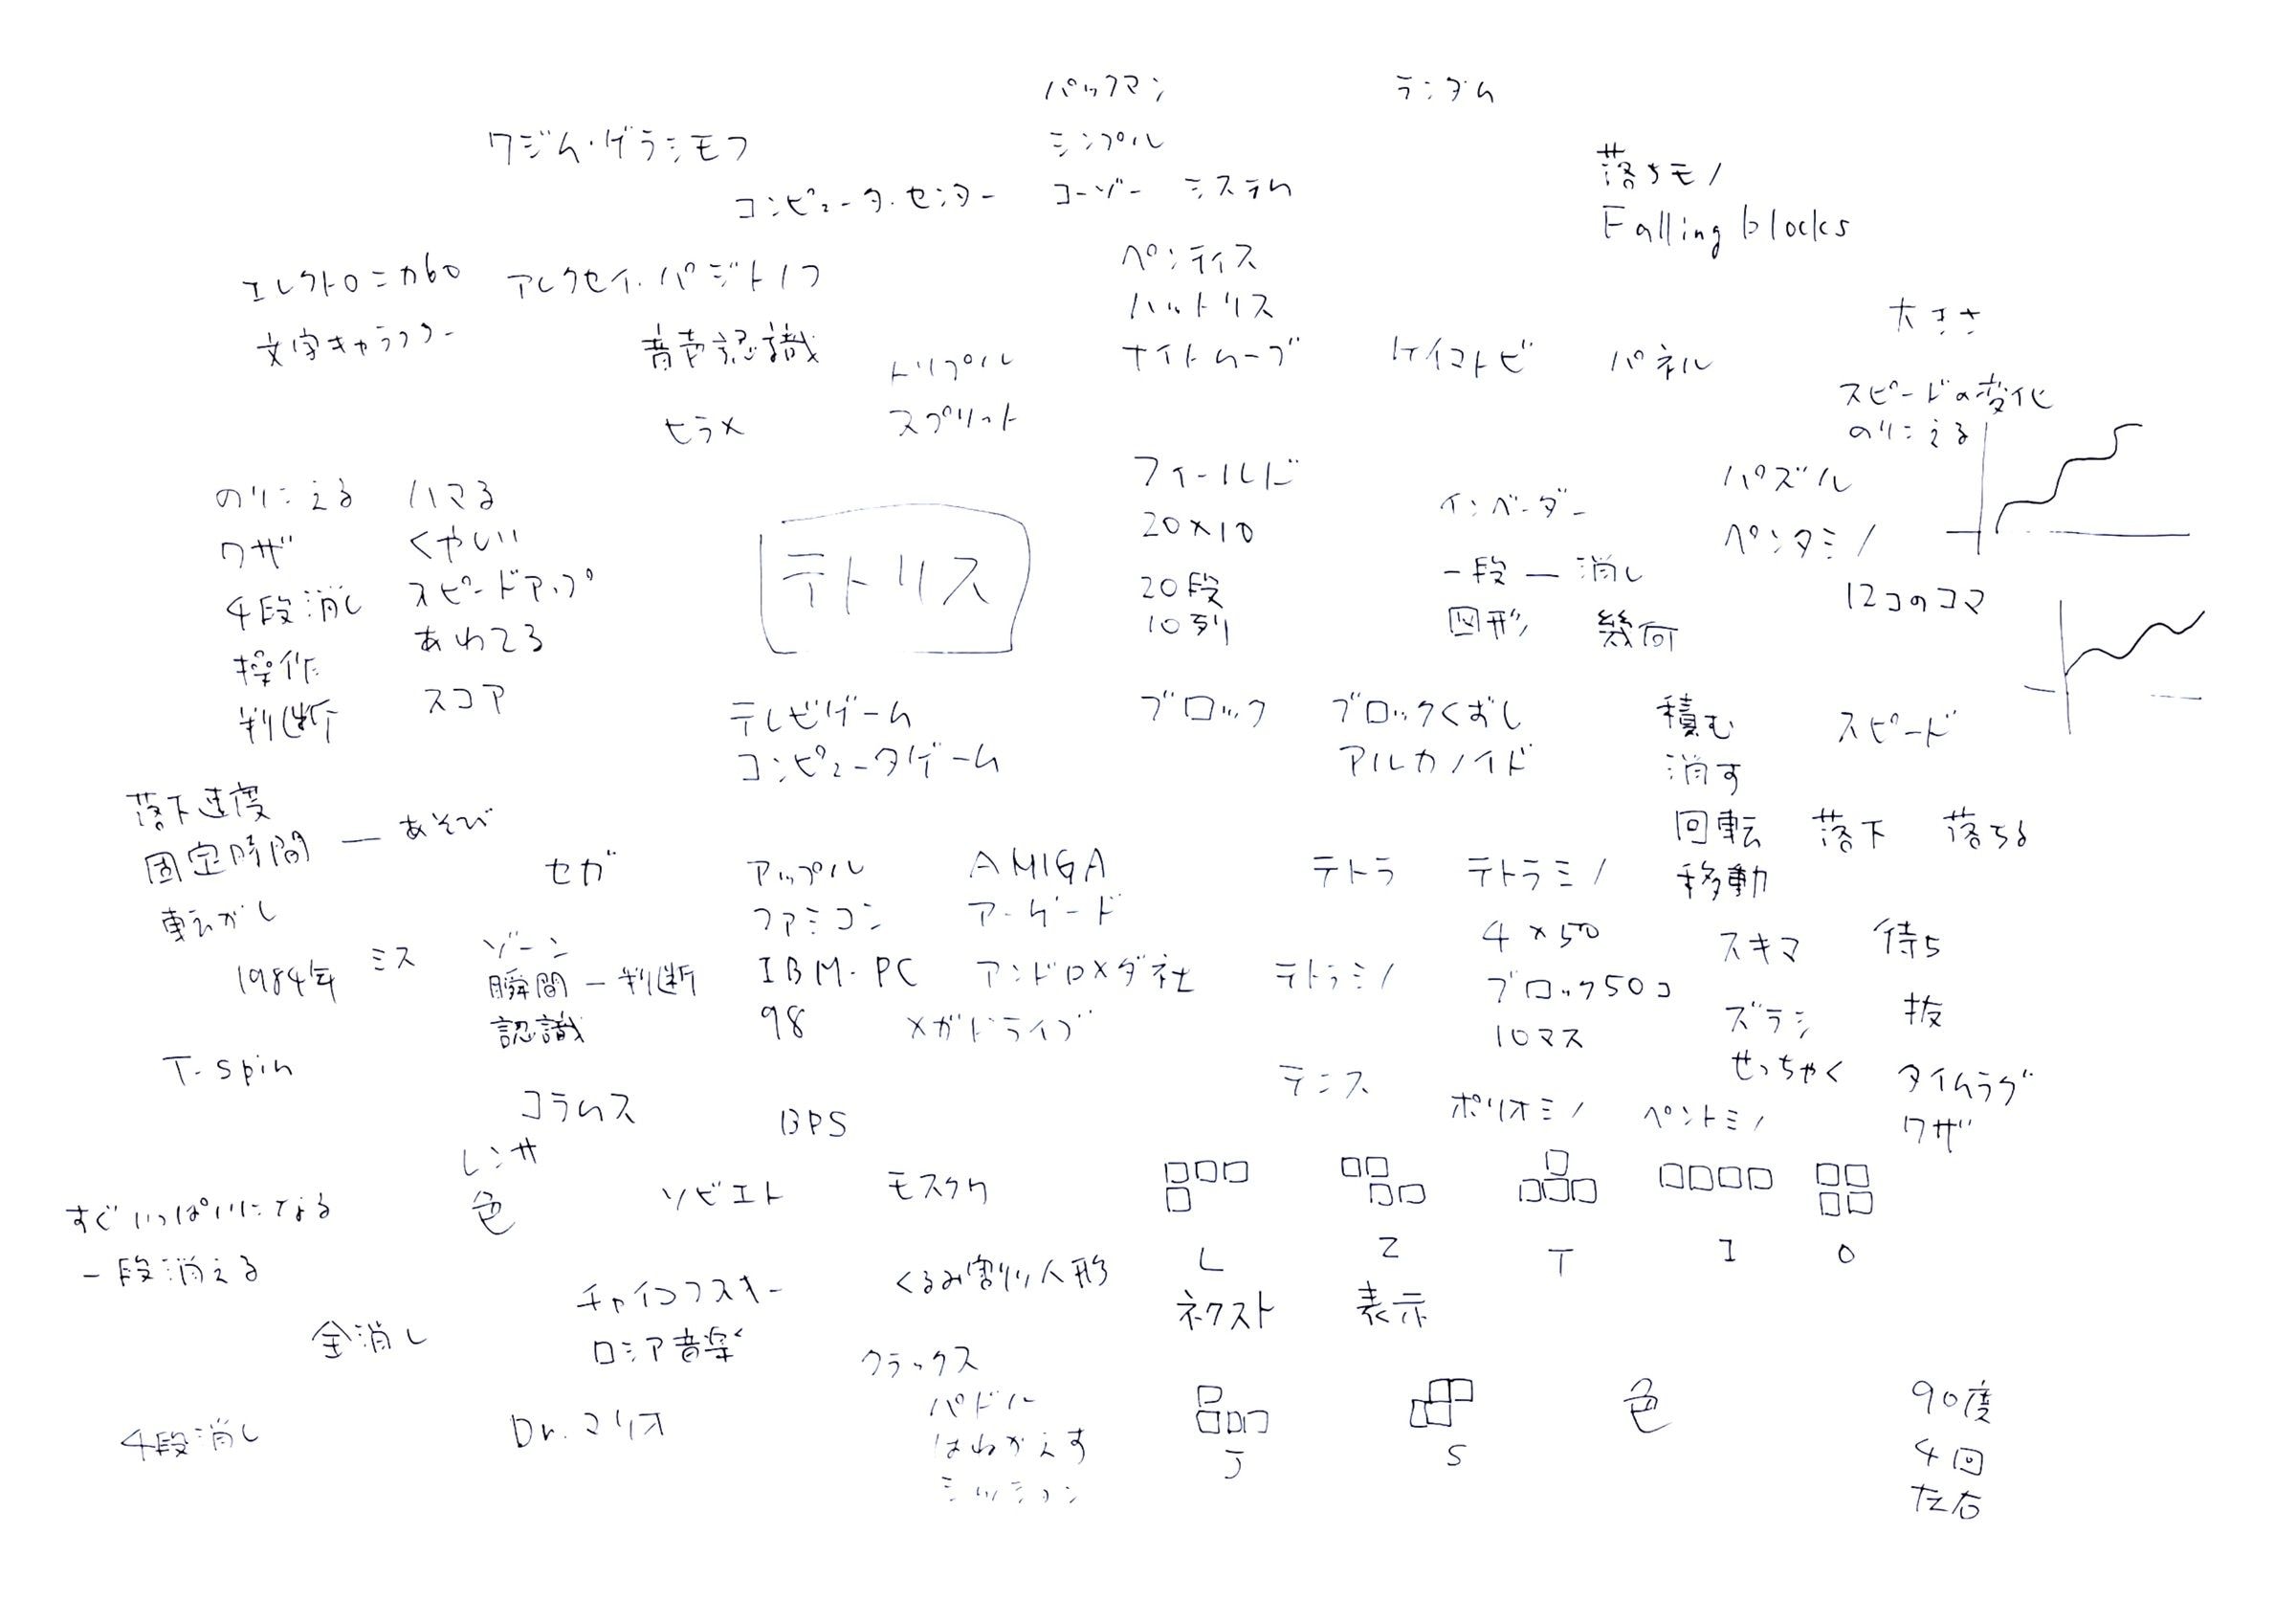 パックマン
ランダム
ワジム・ゲラシモフ
シンプル
落ちモノ
コンピュータ・センター
コーゾー システム
Falling blocks
エレクトロニカ60
アレクセイ・パジトノフ
ペンティス
ハットリス
大きさ
文字キャラクター
音声認識
トリプル
ナイトムーブ
ケイマトビ
パネル
ヒラメ
スプリット
スピードの変化
のりこえる
フィールド
のりこえる
ハマる
パズル
インベーダー
テトリス
20×10
ワザ
くやしい
ペンタミノ
4段消し
スピードアップ
20段
一段 — 消し
12コのコマ
10列
図形
幾何
操作
あわてる
判断
スコア
テレビゲーム
ブロック
ブロックくずし
積む
スピード
コンピュータゲーム
アルカノイド
消す
落下速度
固定時間 — あそび
回転
落下
落ちる
セガ
アップル
AMIGA
テトラ
テトラミノ
移動
転がし
ファミコン
アーケード
4×50
スキマ
待ち
1984年
ミス
ゾーン
瞬間 — 判断
IBM・PC
アンドロメダ社
テトラミノ
ブロック50コ
認識
98
メガドライブ
10マス
ズラシ
抜
T-spin
テニス
せっちゃく
タイムラグ
コラムス
BPS
ポリオミノ
ペントミノ
ワザ
レンサ
色
ソビエト
モスクワ
すぐいっぱいになる
一段消える
L
Z
T
I
O
チャイコフスキー
くるみ割り人形
ネクスト
表示
全消し
ロシア音楽
クラックス
4段消し
Dr.マリオ
パドル
はねかえす
ミッション
J
S
色
90度
4回
左右